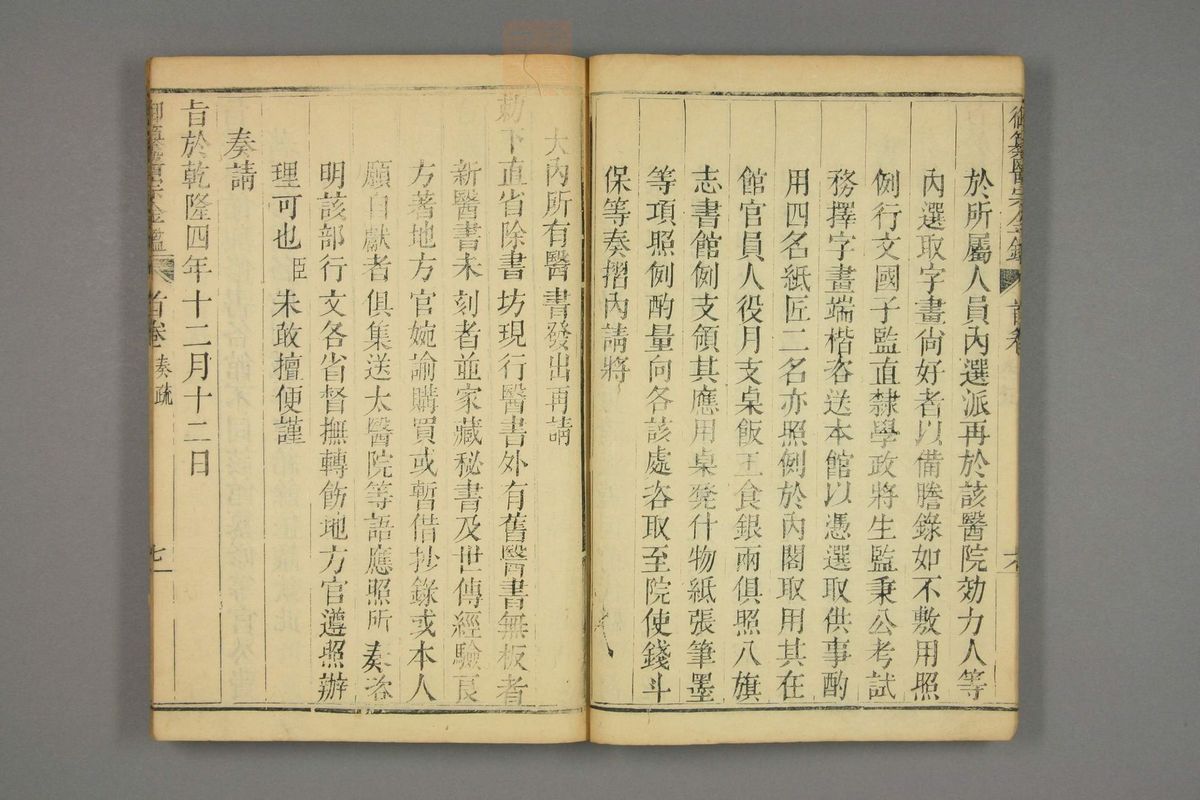 御纂醫宗金鑑 首卷 六
於所屬人員內選派再於該醫院効力人等
內選取字畫尙好者以備謄錄如不敷用照
例行文國子監直隸學政將生監秉公考試
務擇字畫端楷咨送本館以憑選取供事酌
用四名紙匠二名亦照例於內閣取用其在
館官員人役月支桌飯工食銀兩俱照八旗
志書館例支領其應用桌凳什物紙張筆墨
等項照例酌量向各該處咨取至院使錢斗
保等奏摺內請將
大內所有醫書發出再請
勅下直省除書坊現行醫書外有舊醫書無板者
新醫書未刻者並家藏秘書及世傳經驗良
方著地方官婉諭購買或暫借抄錄或本人
願自獻者俱集送太醫院等語應照所奏咨
明該部行文各省督撫轉飭地方官遵照辦
理可也臣 未敢擅便謹
奏請
旨於乾隆四年十二月十二日
御纂醫宗金鑑 首卷 奏疏 七